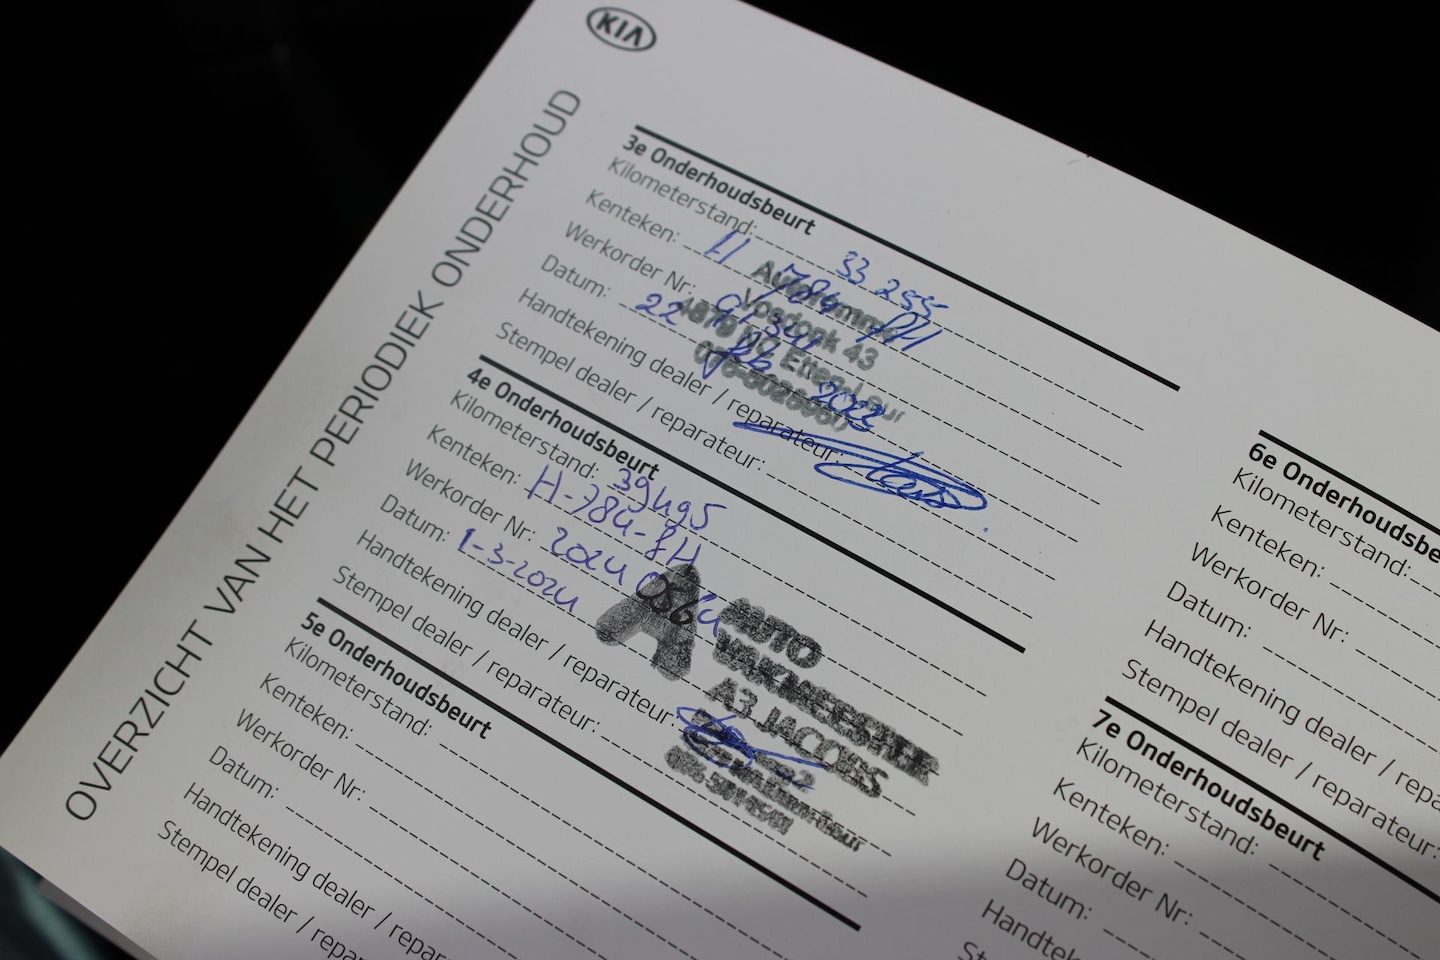 KIA
OVERZICHT VAN HET PERIODIEK ONDERHOUD
3e Onderhoudsbeurt
Kilometerstand: 33 255
Kenteken: H 784
Werkorder Nr:
Datum: 22 2023
Handtekening dealer / reparateur:
Stempel dealer / reparateur:
Vosdonk 43
Etten-Leur
4e Onderhoudsbeurt
Kilometerstand: 39495
Kenteken: H-784-
Werkorder Nr: 2024
Datum: 1-3-2024
Handtekening dealer / reparateur:
Stempel dealer / reparateur:
A AUTO
VAKMEESTER
A3 JACOBS
5e Onderhoudsbeurt
Kilometerstand:
Kenteken:
Werkorder Nr:
Datum:
Handtekening dealer / repar
Stempel dealer / repa
6e Onderhoudsbe
Kilometerstand:
Kenteken:
Werkorder Nr:
Datum:
Handtekening dealer / repa
Stempel dealer / reparateur:
7e Onderhoudsbeurt
Kilometerstand:
Kenteken:
Werkorder Nr:
Datum:
Handtek
Ste